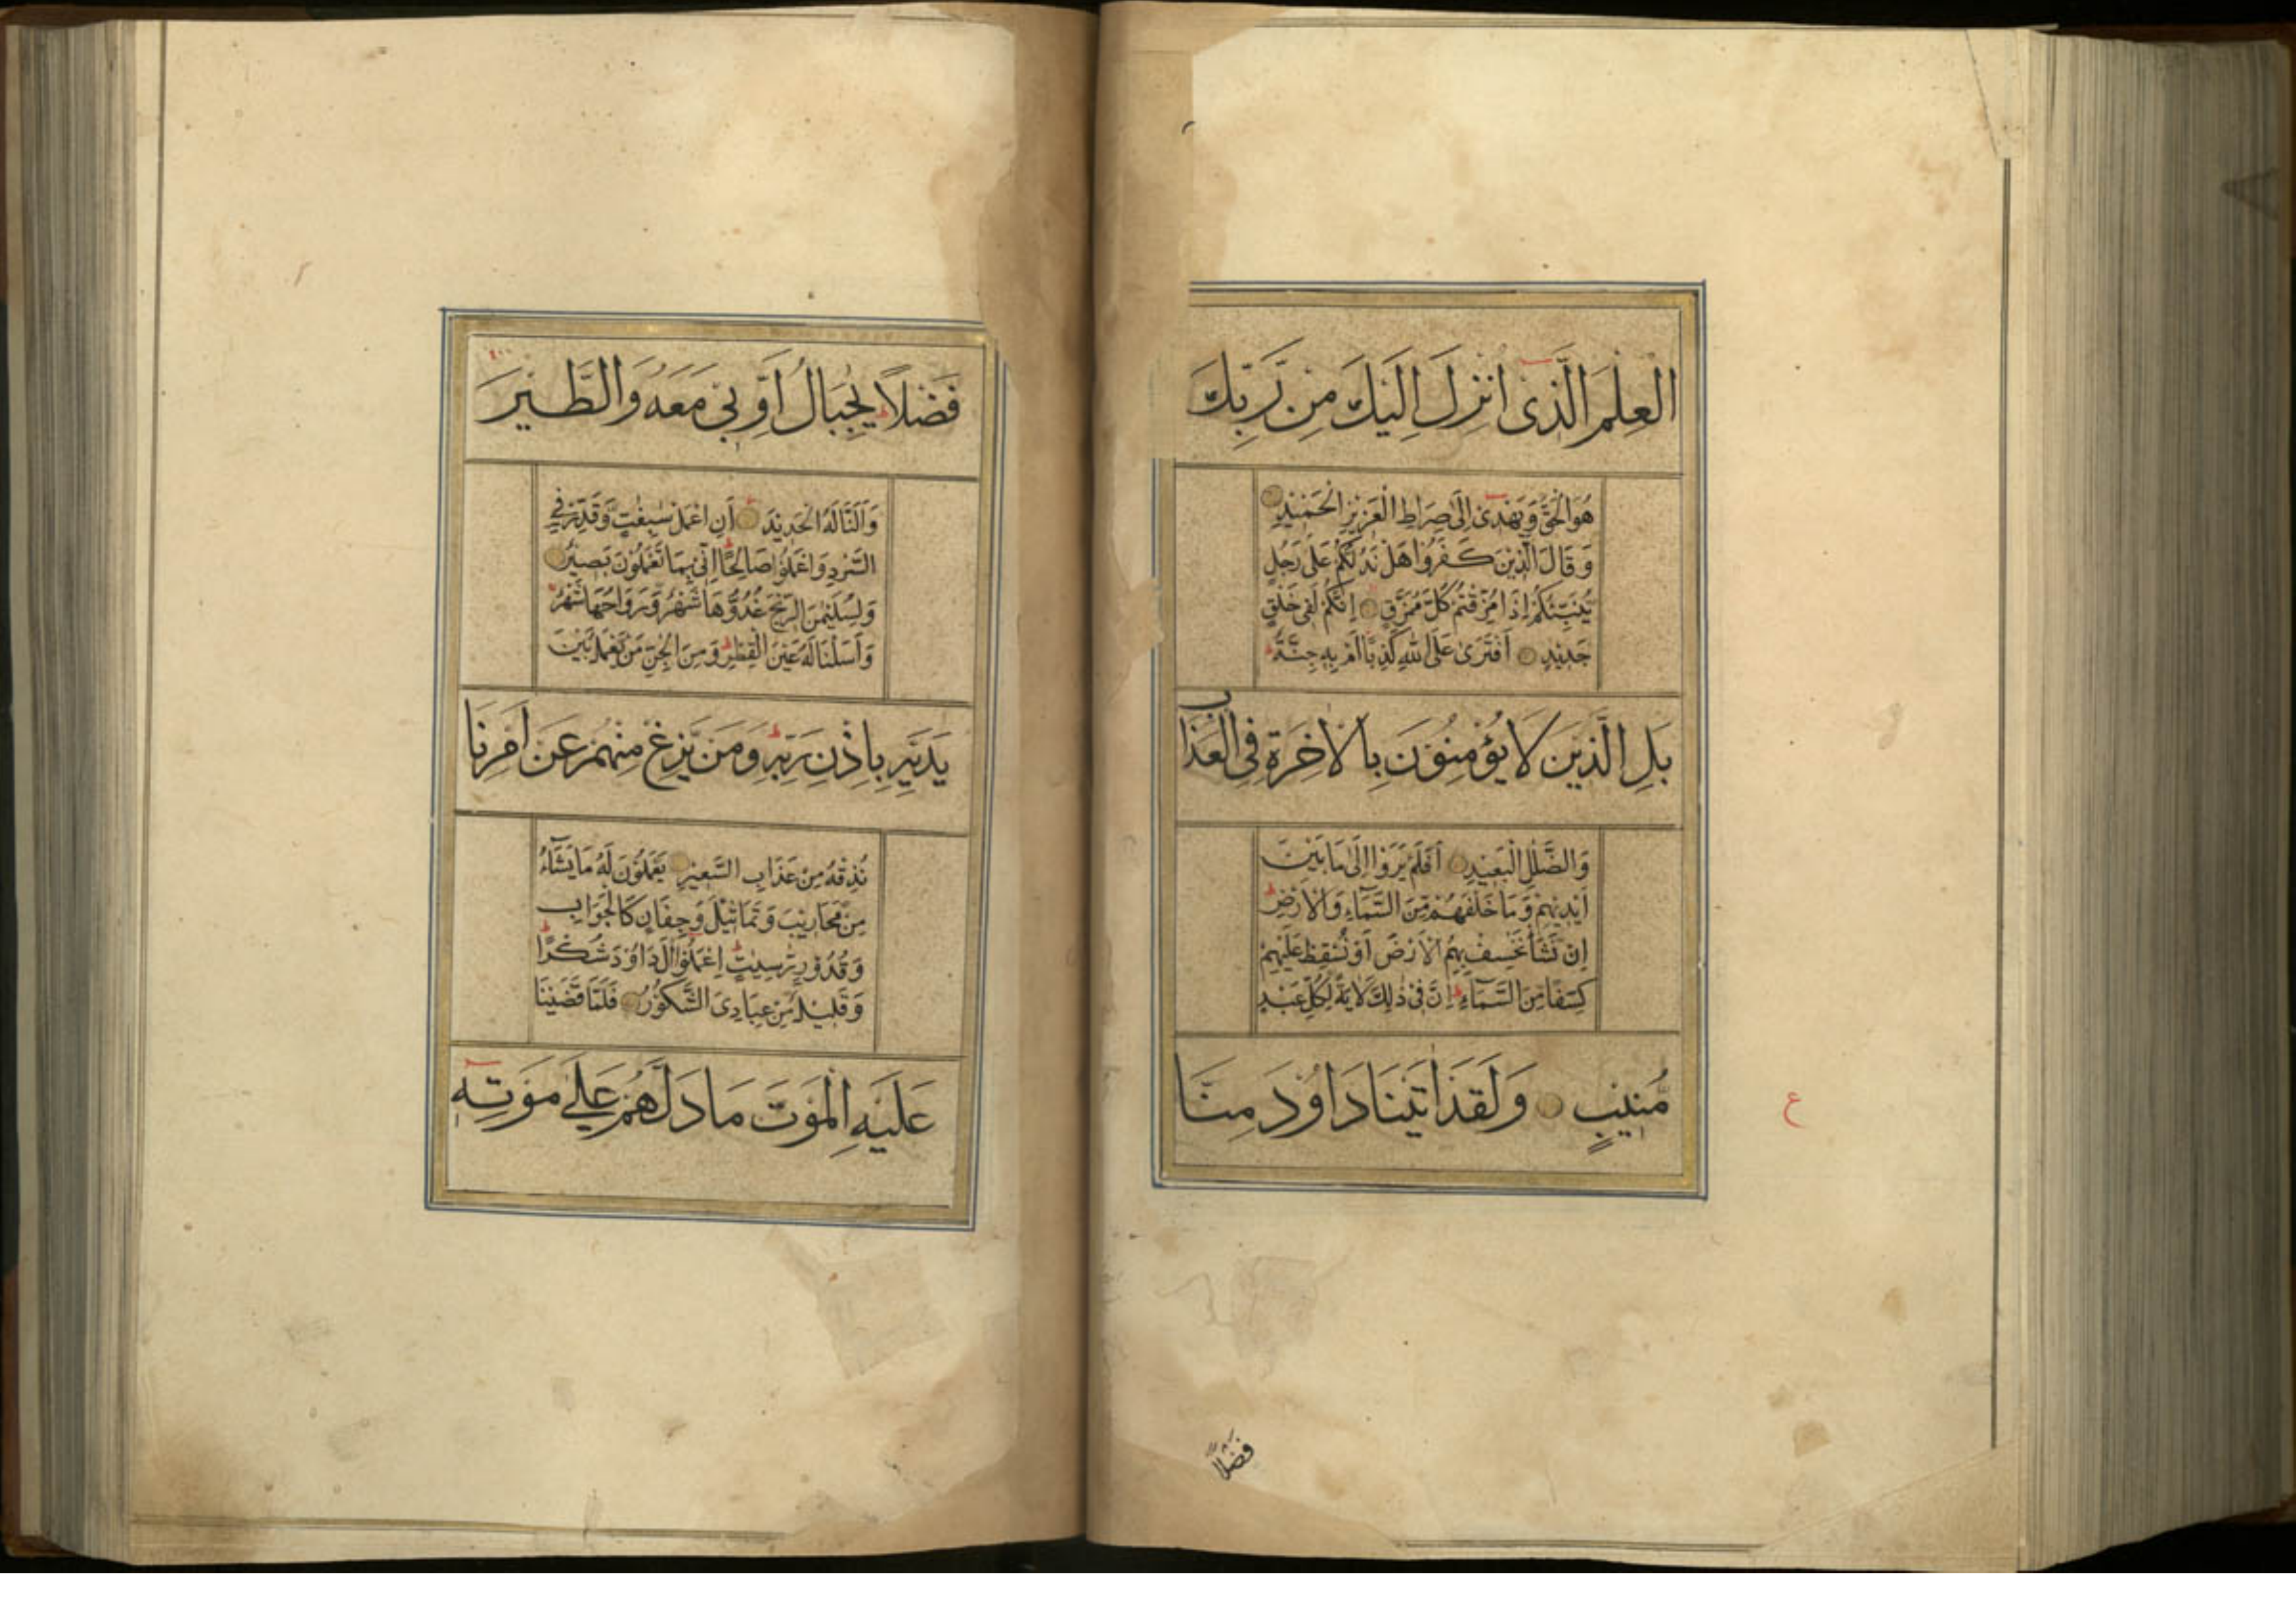 الْعِلْمَ الَّذِىْ اُنْزِلَ اِلَيْكَ مِنْ رَّبِّكَ
هُوَ الْحَقَّ وَيَهْدِىْ اِلٰى صِرَاطِ الْعَزِيْزِ الْحَمِيْدِ
وَقَالَ الَّذِيْنَ كَفَرُوْا هَلْ نَدُلُّكُمْ عَلٰى رَجُلٍ
يُّنَبِّئُكُمْ اِذَا مُزِّقْتُمْ كُلَّ مُمَزَّقٍ اِنَّكُمْ لَفِىْ خَلْقٍ
جَدِيْدٍ اَفْتَرٰى عَلَى اللّٰهِ كَذِبًا اَمْ بِهٖ جِنَّةٌ ط
بَلِ الَّذِيْنَ لَا يُؤْمِنُوْنَ بِالْاٰخِرَةِ فِى الْعَذَابِ
وَالضَّلٰلِ الْبَعِيْدِ اَفَلَمْ يَرَوْا اِلٰى مَا بَيْنَ
اَيْدِيْهِمْ وَمَا خَلْفَهُمْ مِّنَ السَّمَآءِ وَالْاَرْضِ ط
اِنْ نَّشَاْ نَخْسِفْ بِهِمُ الْاَرْضَ اَوْ نُسْقِطْ عَلَيْهِمْ
كِسَفًا مِّنَ السَّمَآءِ ط اِنَّ فِىْ ذٰلِكَ لَاٰيَةً لِّكُلِّ عَبْدٍ
مُّنِيْبٍ وَلَقَدْ اٰتَيْنَا دَاوٗدَ مِنَّا
ع
فَضْلًا
فَضْلًا ط يٰجِبَالُ اَوِّبِىْ مَعَهٗ وَالطَّيْرَ
وَاَلَنَّا لَهُ الْحَدِيْدَ اَنِ اعْمَلْ سٰبِغٰتٍ وَّقَدِّرْ فِى
السَّرْدِ وَاعْمَلُوْا صَالِحًا ط اِنِّىْ بِمَا تَعْمَلُوْنَ بَصِيْرٌ
وَلِسُلَيْمٰنَ الرِّيْحَ غُدُوُّهَا شَهْرٌ وَّرَوَاحُهَا شَهْرٌ
وَاَسَلْنَا لَهٗ عَيْنَ الْقِطْرِ ط وَمِنَ الْجِنِّ مَنْ يَّعْمَلُ بَيْنَ
يَدَيْهِ بِاِذْنِ رَبِّهٖ ط وَمَنْ يَّزِغْ مِنْهُمْ عَنْ اَمْرِنَا
نُذِقْهُ مِنْ عَذَابِ السَّعِيْرِ يَعْمَلُوْنَ لَهٗ مَا يَشَآءُ
مِنْ مَّحَارِيْبَ وَتَمَاثِيْلَ وَجِفَانٍ كَالْجَوَابِ
وَقُدُوْرٍ رّٰسِيٰتٍ ط اِعْمَلُوْا اٰلَ دَاوٗدَ شُكْرًا ط
وَقَلِيْلٌ مِّنْ عِبَادِىَ الشَّكُوْرُ فَلَمَّا قَضَيْنَا
عَلَيْهِ الْمَوْتَ مَا دَلَّهُمْ عَلٰى مَوْتِهٖ